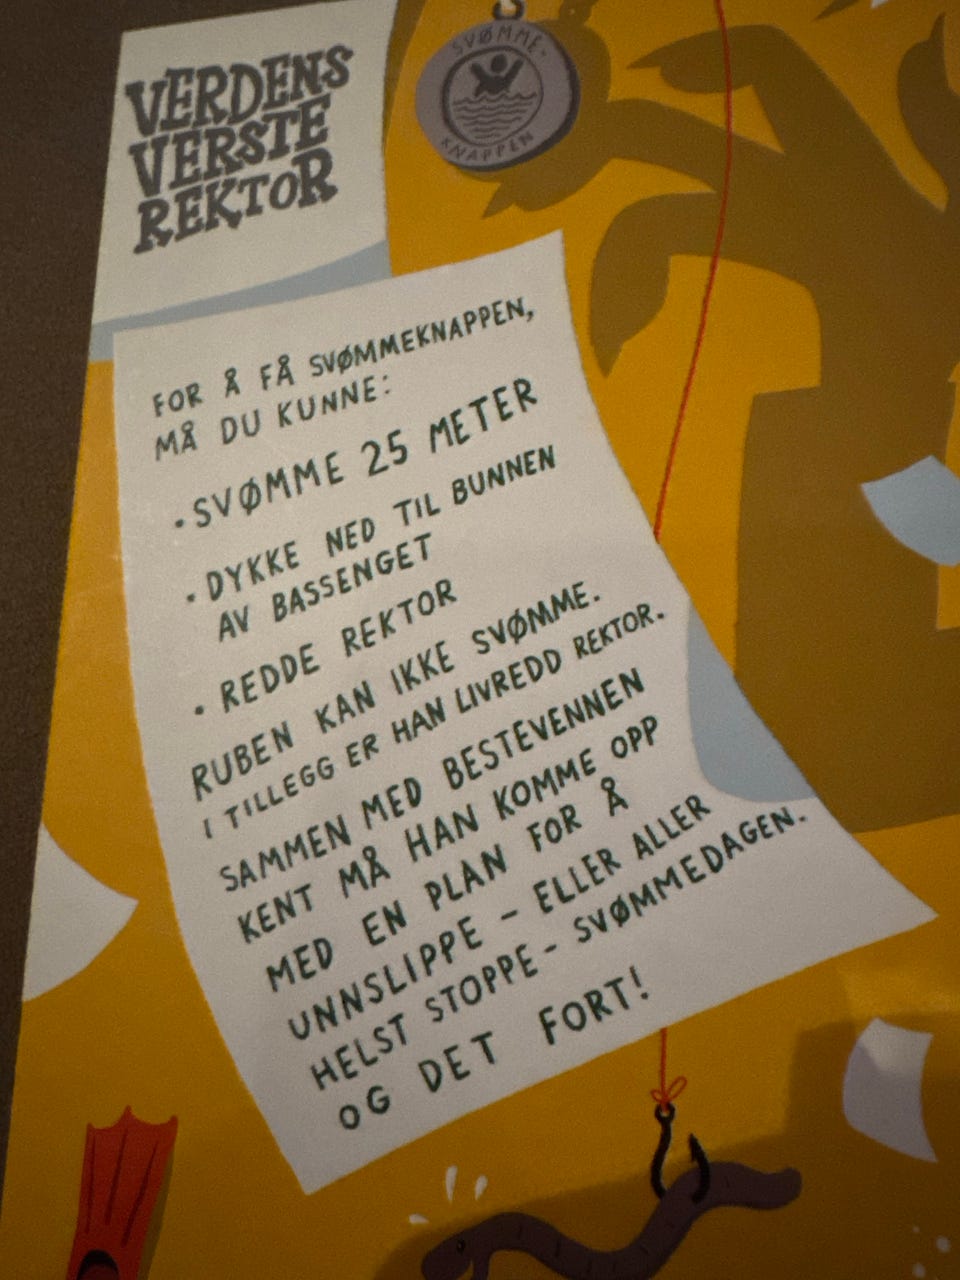 VERDENS
VERSTE
REKTOR
SVØMME-
KNAPPEN
FOR Å FÅ SVØMMEKNAPPEN,
MÅ DU KUNNE:
• SVØMME 25 METER
• DYKKE NED TIL BUNNEN
AV BASSENGET
• REDDE REKTOR
RUBEN KAN IKKE SVØMME.
I TILLEGG ER HAN LIVREDD REKTOR.
SAMMEN MED BESTEVENNEN
KENT MÅ HAN KOMME OPP
MED EN PLAN FOR Å
UNNSLIPPE – ELLER ALLER
HELST STOPPE – SVØMMEDAGEN.
OG DET FORT!